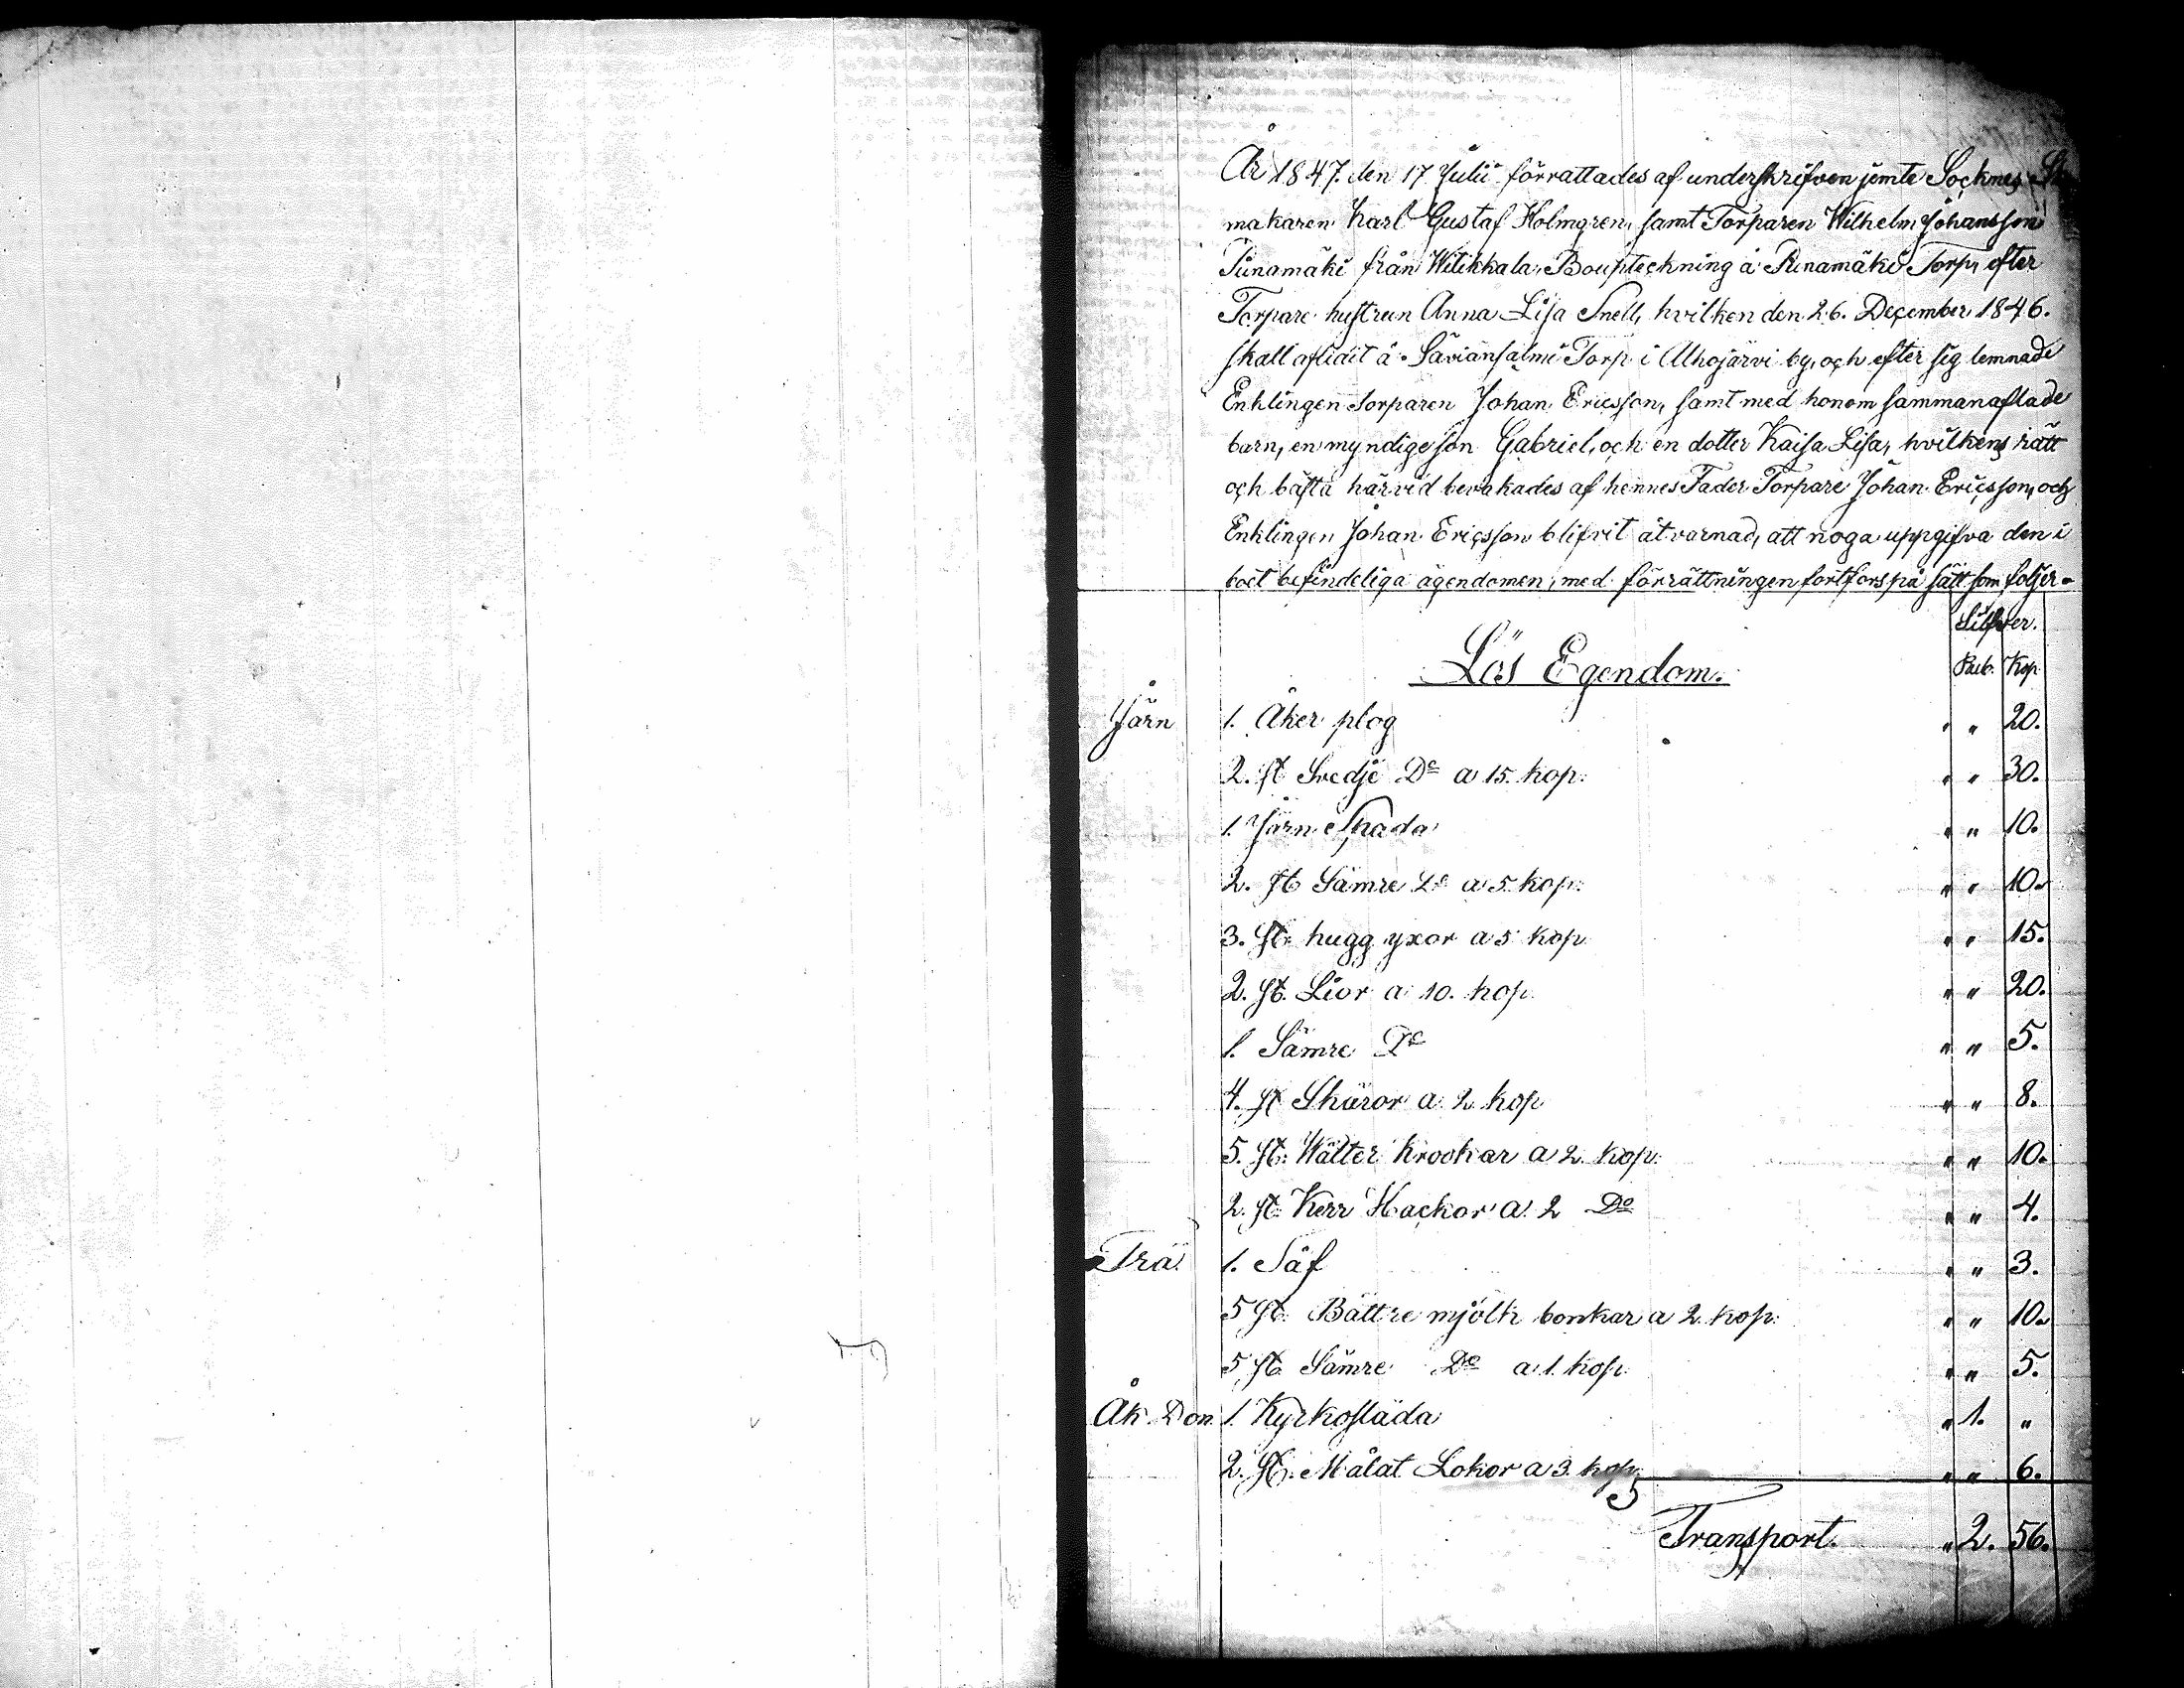 År 1847. den 17 Julii förrättades af underskrifven jemte Sockne
makaren Karl Gustaf Holmgren, samt Torparen Wilhelm Johansson
från Witikkala, Boupteckning å Torp, efter
Torpare hustrun Anna Lisa Snell, hvilken den 26. December 1846.
skall aflidit å Saviansalmi Torp i Alhojärvi by, och efter sig lemnade
Enklingen Torparen Johan Ericsson, samt med honom sammanaflade
barn, en myndige son Gabriel, och en dotter Kaisa Lisa, hvilkens rätt
och bästa härvid bevakades af hennes Fader Torpare Johan Ericsson, och
Enklingen Johan Ericsson blifvit åtvarnad, att noga uppgifva den i
boet befindeliga ägendomen, med förrättningen fortfors på sätt som följer
Silfver.
Lös Egendom.
Rub. Kop
Järn 1. Åker plog " " 20.
2. st Svedje Do a 15. kop: " " 30.
1. Järn Spada " " 10.
2. st Sämre Do a 5. kop: " " 10.
3. st. hugg yxor a 5 kop " " 15.
2. st. Lior a 10. kop. " " 20.
1. Sämre Do " " 5.
4. st Skäror a 2 kop " " 8.
5. st: Wälter krookar a 2. kop: " " 10.
2. st. Kerr Hackor a 2 Do " " 4.
Trä. 1. Såf " " 3.
5 st. Bättre mjölk bonkar a 2 kop: " " 10.
5 st. Sämre Do a 1. kop. " " 5.
Åk Don 1. Kyrkosläda " 1. "
2. st. Målat Lokor a 3. kop. " " 6.
Transport. " 2. 56.